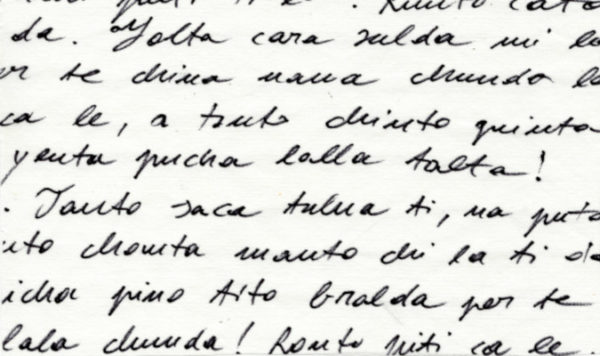 da. Yolta cara sulda mi
te china nana chundo
ca le, a tonto chinto quinta
yenta pucha lalla talta!
. Tanto saca tulna ti, na
chonta manto chi la ti
icha pino tito bralda por te
lala chunda! Ronto piti ca le.